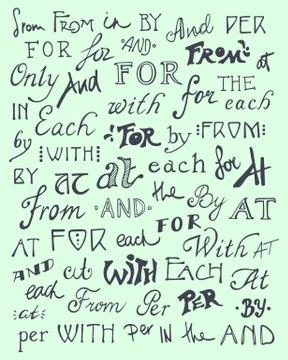 from FROM in BY And PER
FOR for ·AND· FROM at
Only And FOR for THE
IN Each with each
by :WITH: FOR by :FROM:
BY at at each for At
From ·AND· the By AT
FOR
AT FOR each With AT
AND at WITH EACH At
each From Per PER ·BY·
·at·
per WITH Per IN the AND